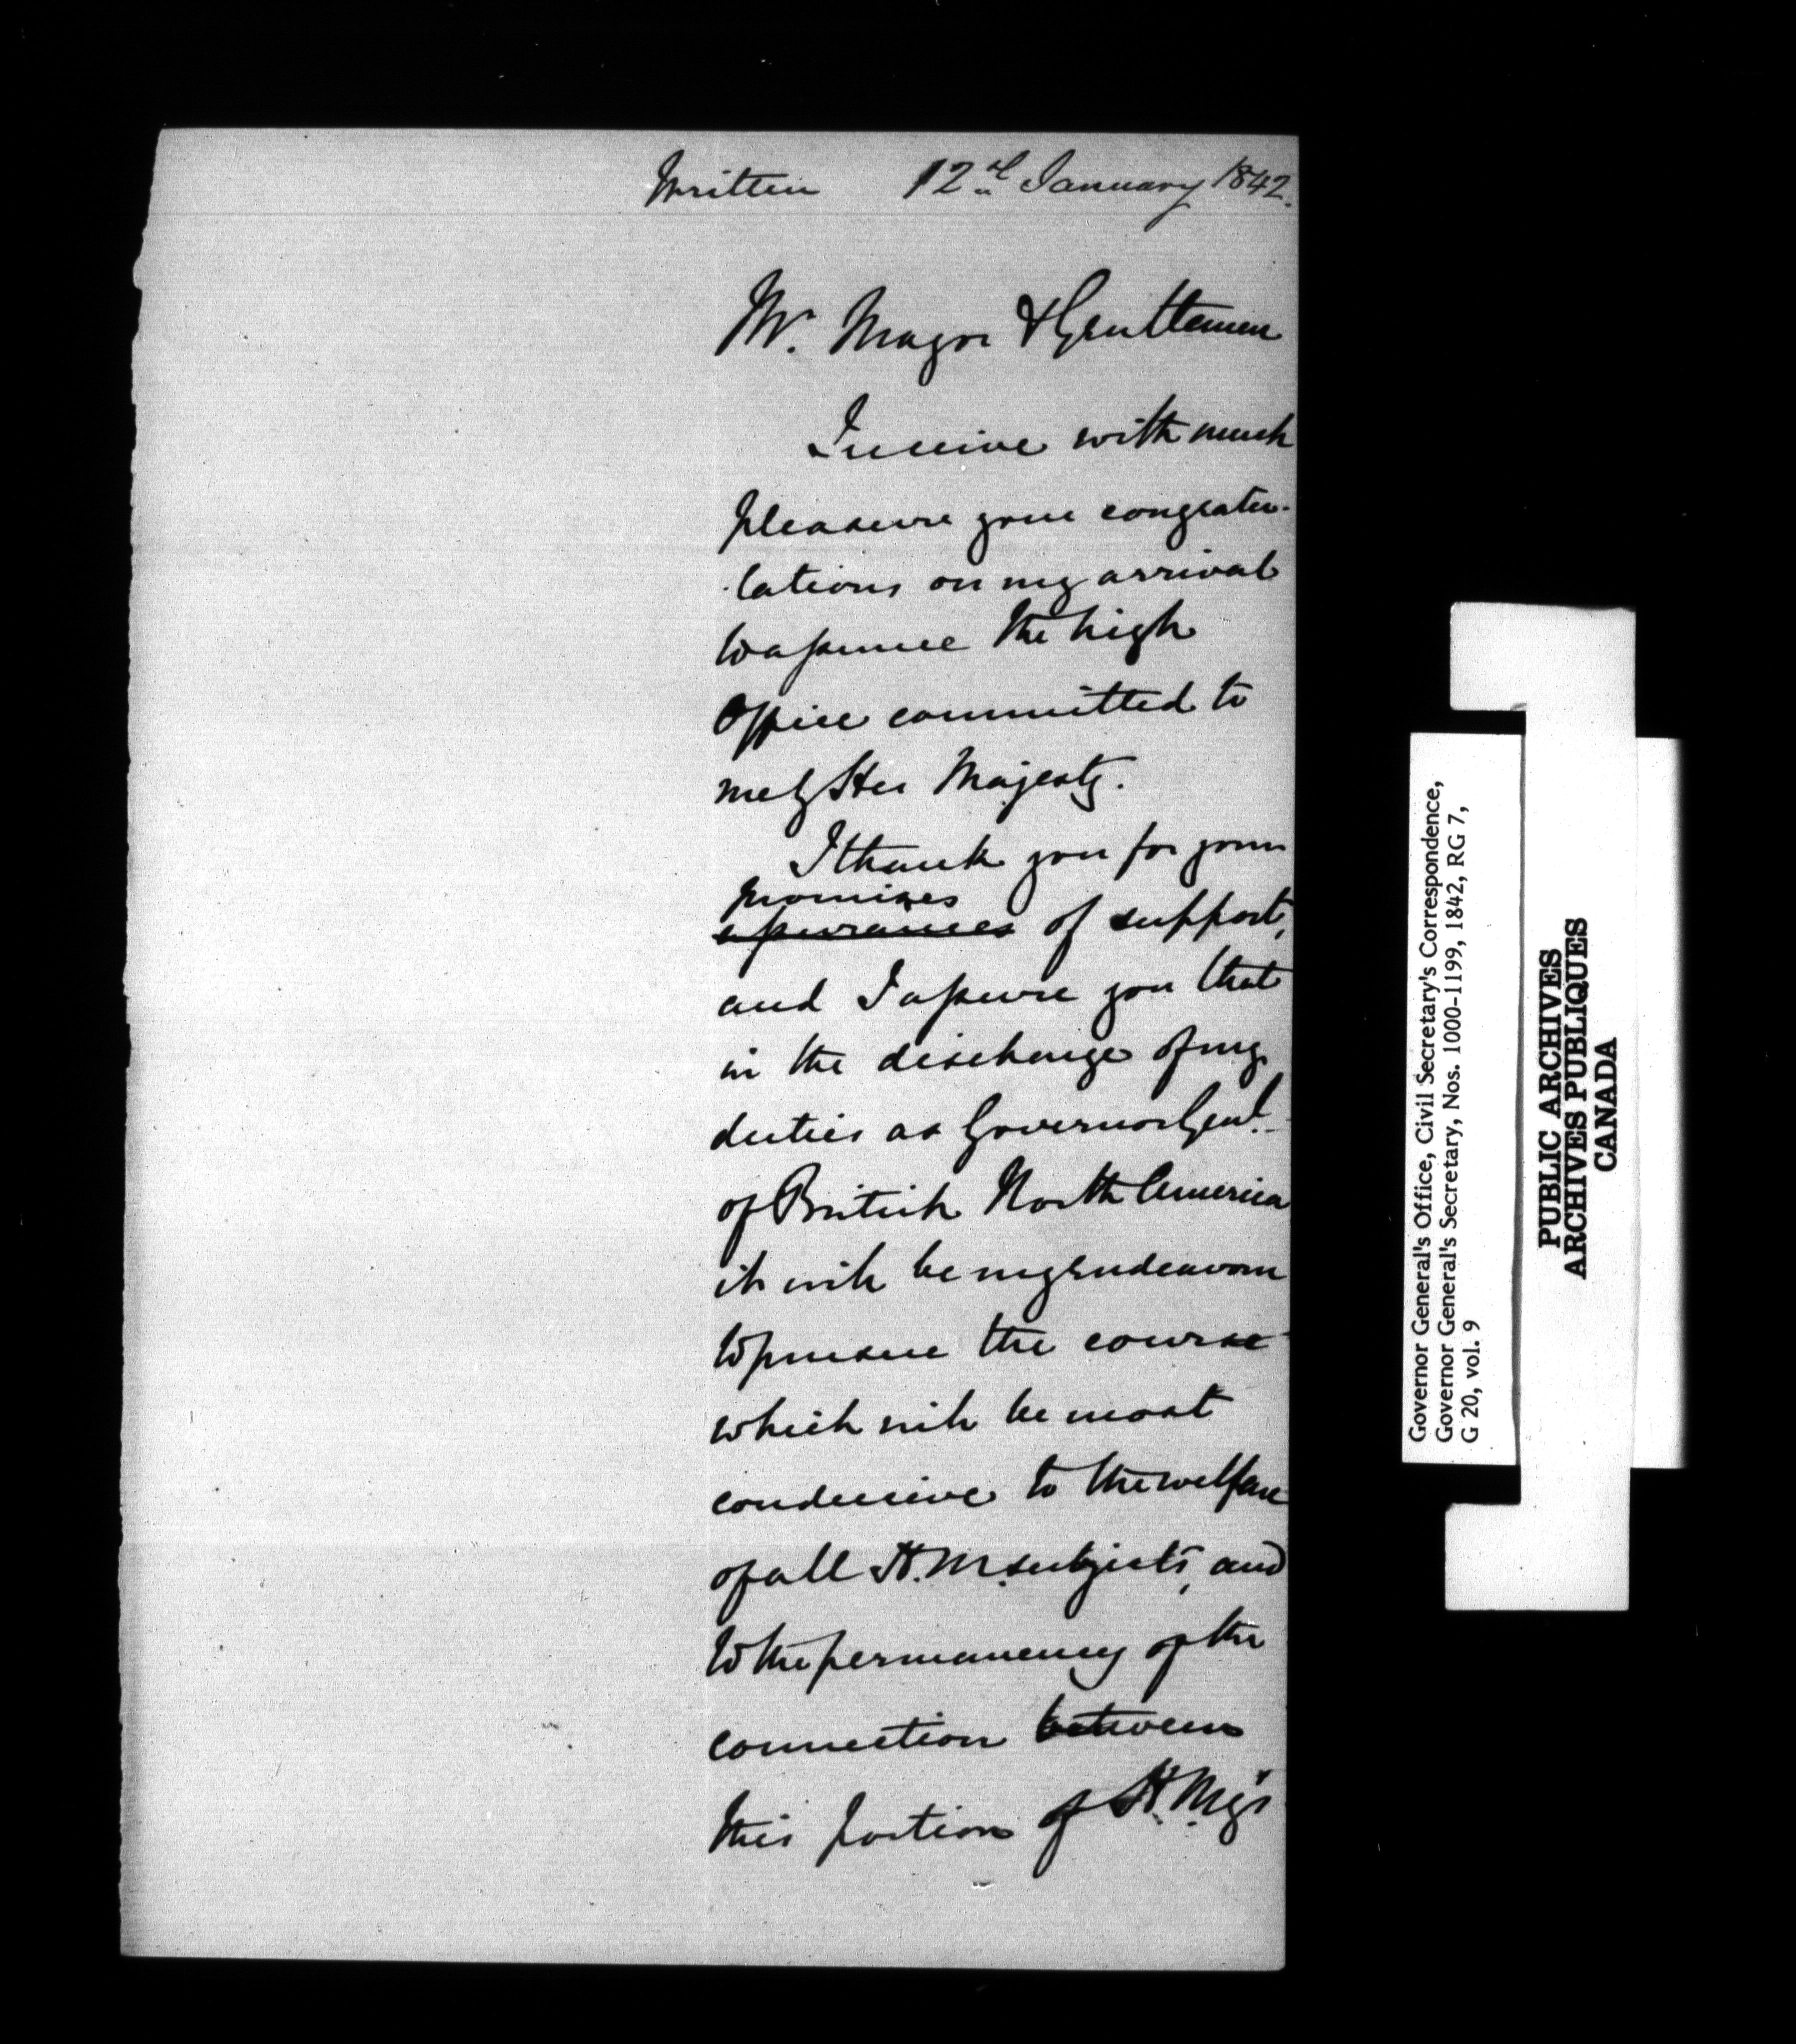 Written 12d January 1842.
Mr. Mayor & Gentlemen
I receive with much
pleasure your congratu-
-lations on my arrival
to assume the high
Office committed to
me by Her Majesty.
I thank you for your
promises
assurances of support,
and I assure you that
in the discharge of my
duties as Governor Genl.
of British North America
it will be my endeavour
to pursue the course
which will be most
conducive to the welfare
of all H.M. subjects, and
to the permanency of the
connection between
this portion of H.My's
Governor General's Office, Civil Secretary's Correspondence,
Governor General's Secretary, Nos. 1000-1199, 1842, RG 7,
G 20, vol. 9
PUBLIC ARCHIVES
ARCHIVES PUBLIQUES
CANADA